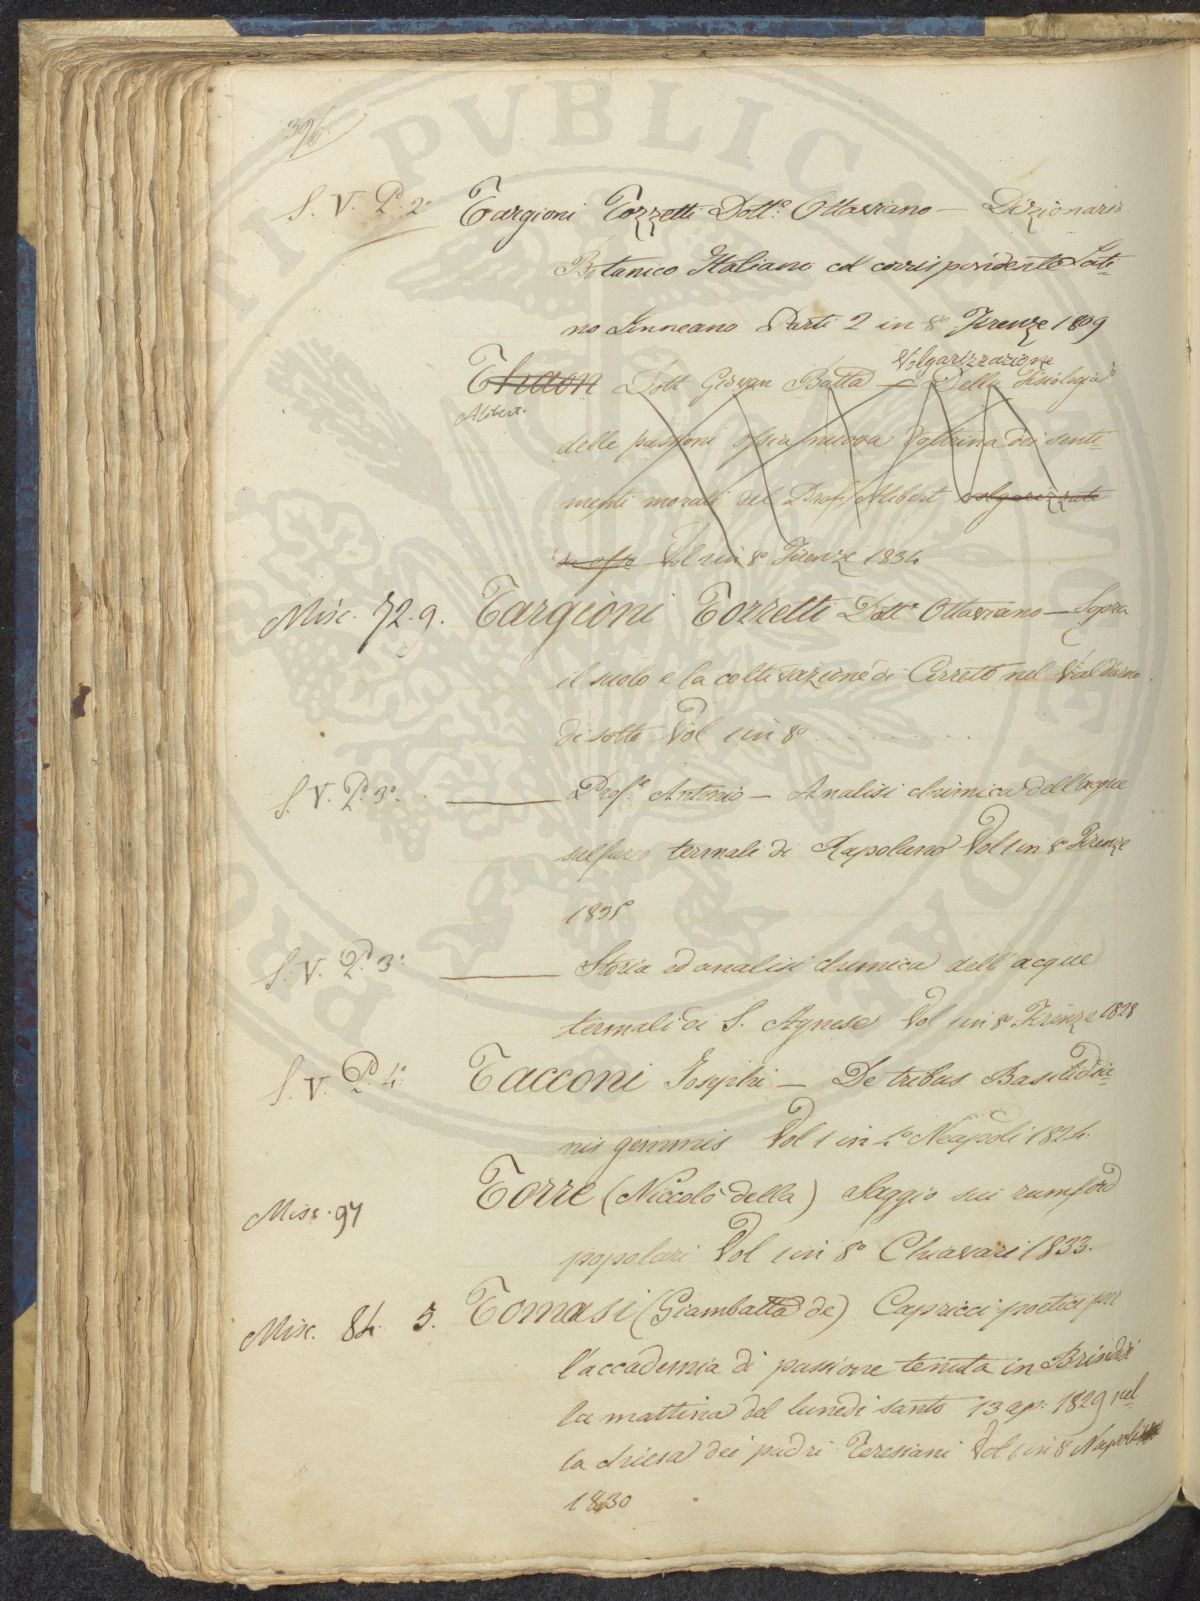 396
S. V. P. 2º Targioni Tozzetti Dottº. Ottaviano — Dizionario
Botanico Italiano col corrispondente Lati=
no Linneano Parti 2 in 8º Firenze 1809
Volgarizzazione
Dott Giovan Batta — Della Fisiologia
Alibert.
delle passioni ossia nuova dottrina dei senti=
menti morali del Prof. Alibert volgarizzata
da esso Vol 1 in 8º Firenze 1834
Misc. 72. 9. Targioni Tozzetti Dottº Ottaviano — Sopra
il suolo e la coltivazione di Cerreto nel Valdarno
di sotto Vol 1 in 8º . . . . . . . . . .
S. V. P. 3º. ——— Profº. Antonio — Analisi chimica dell'acque
sulfureo termali di Rapolano Vol 1 in 8º Firenze
1835
S. V. P. 3º. ——— Storia ed analisi chimica dell'acque
termali di S. Agnese Vol 1 in 8º Firenze 1828
S. V. P. 4º. Tacconi Josephi — De tribus Basilidia=
nis gemmis Vol 1 in 4º Neapoli 1824.
Misc. 97 Torre (Niccolò della) Saggio sui rumford
popolari Vol 1 in 8º Chiavari 1833.
Misc. 84. 5. Tomasi (Giambatta de) Capricci poetici per
l'accademia di passione tenuta in Brindisi
la mattina del lunedi santo 13 ap: 1829 nel-
la chiesa dei padri Teresiani Vol 1 in 8 Napoli
1830
PROPRIETATI PVBLICAE CIVIVM